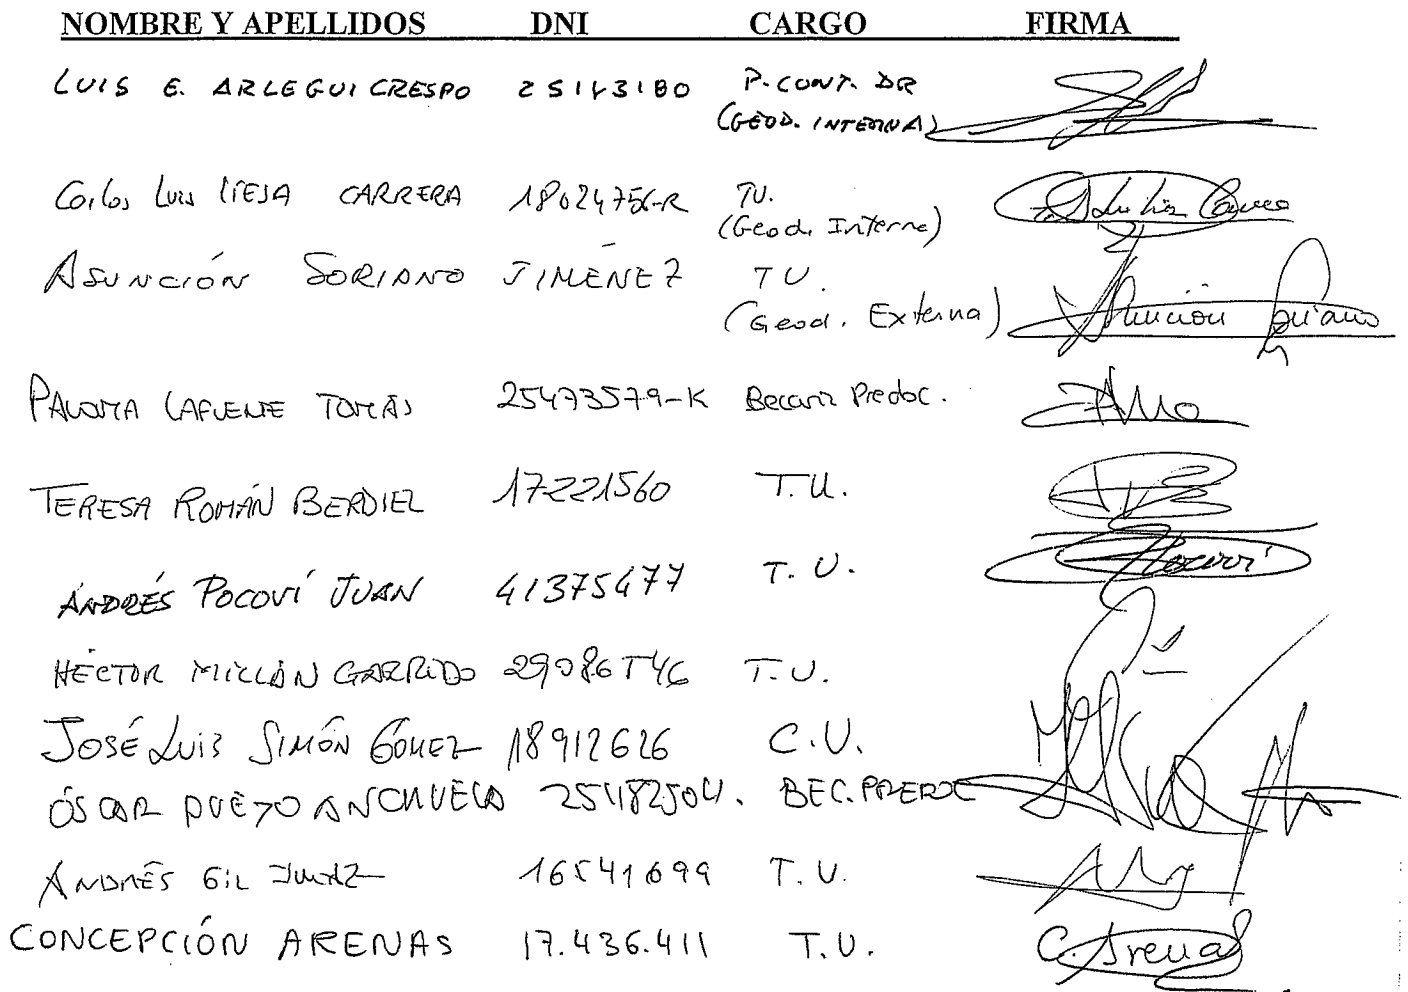 NOMBRE Y APELLIDOS DNI CARGO FIRMA
LUIS E. ARLEGUI CRESPO 25143180 P. CONT. DR
(GEOD. INTERNA)
Carlos Luis LIESA CARRERA 18024756-R TU.
(Geod. Interna)
ASUNCIÓN SORIANO JIMÉNEZ TU.
(Geod. Externa) Asunción Soriano
PALOMA LAFUENTE TOMÁS 25473579-K Becaria Predoc.
TERESA ROMÁN BERDIEL 17221560 T.U.
ANDRÉS POCOVÍ JUAN 41375477 T.U. Pocoví
HÉCTOR MILLÁN GARRIDO T.U.
JOSÉ LUIS SIMÓN GÓMEZ 18912626 C.U.
ÓSCAR PUEYO ANCHUELA 25482504. BEC. PREDOC
ANDRÉS GIL 16541699 T.U.
CONCEPCIÓN ARENAS 17.436.411 T.U. C. Arenas